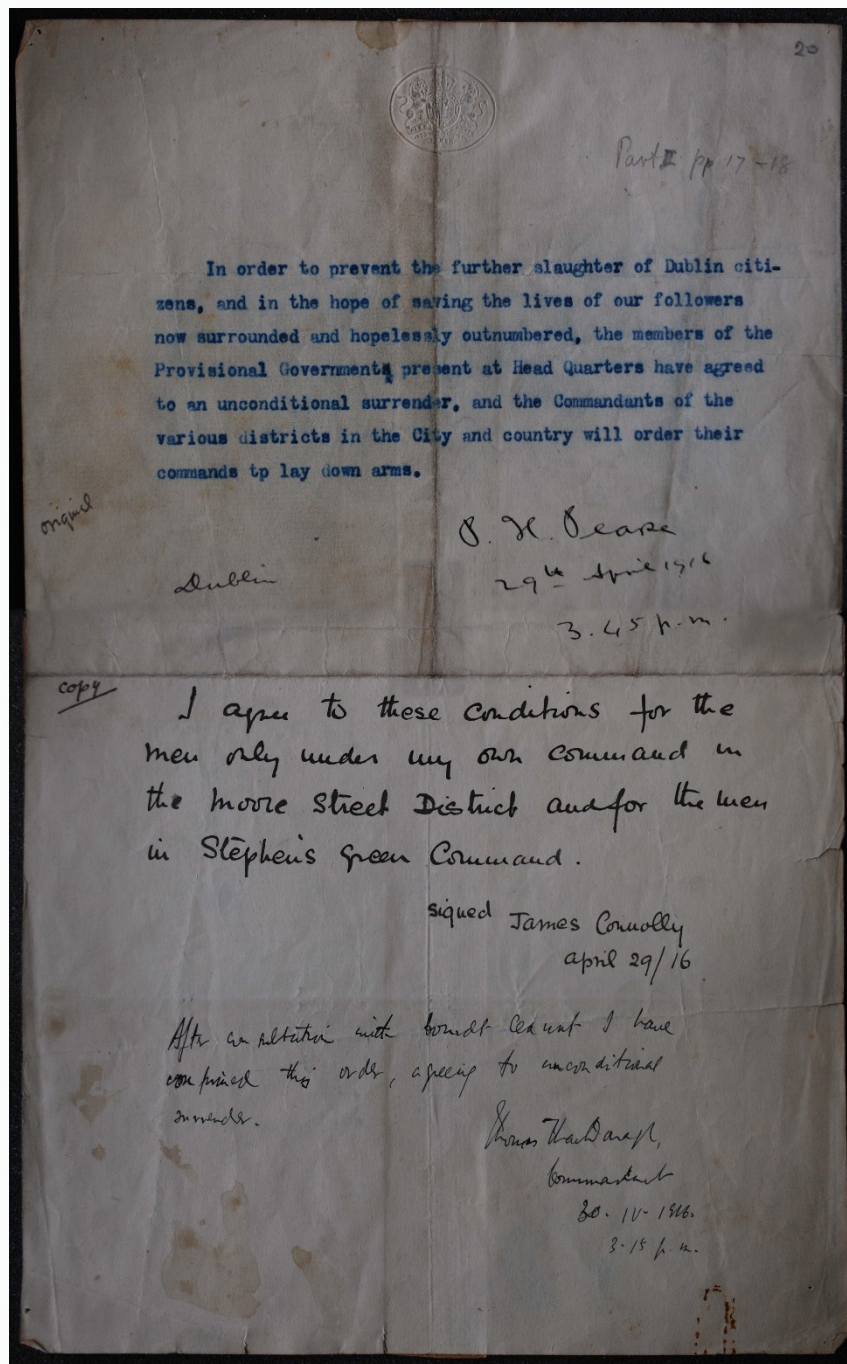 20
Part II pp 17-18
In order to prevent the further slaughter of Dublin citi-
zens, and in the hope of saving the lives of our followers
now surrounded and hopelessly outnumbered, the members of the
Provisional Government present at Head Quarters have agreed
to an unconditional surrender, and the Commandants of the
various districts in the City and country will order their
commands tp lay down arms.
original
P. H. Pearse
Dublin
29th April 1916
3.45 p.m.
copy
I agree to these conditions for the
men only under my own command in
the Moore Street District and for the men
in Stephen's Green Command.
signed James Connolly
april 29/16
After consultation with Comdt Ceannt I have
confirmed this order, agreeing to unconditional
surrender.
Thomas MacDonagh,
Commandant
30. IV. 1916.
3.15 p.m.